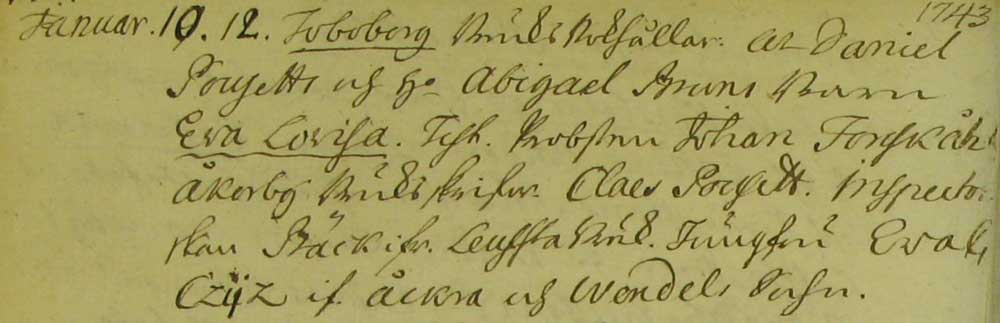 1743
Januar. 10. 12. Toboberg Bruks Bokhållar: at Daniel
Pousette och H:s Abigael Bruns Barn
Eva Lovisa. Test. Probsten Johan Forsk
åkerby Bruks skrifvar. Claes Pousett. Inspector
skan Bäck ifr. Leufsta Bruk. Jungfru Eva
Czijz if. åckra och Wendels